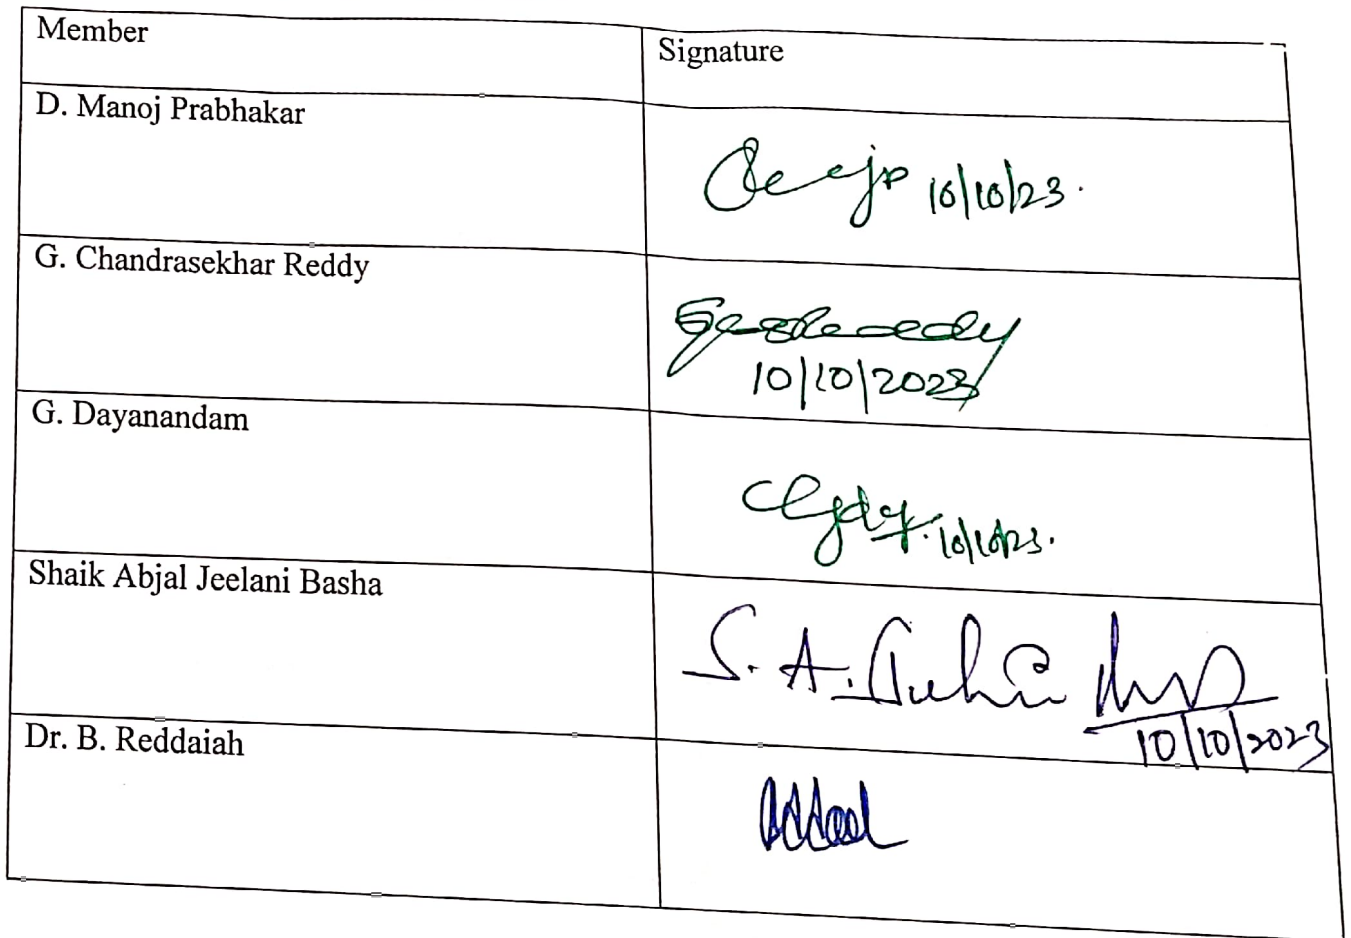 Member
Signature
D. Manoj Prabhakar
10/10/23.
G. Chandrasekhar Reddy
10/10/2023
G. Dayanandam
10/10/23.
Shaik Abjal Jeelani Basha
S. A.
10/10/2023
Dr. B. Reddaiah